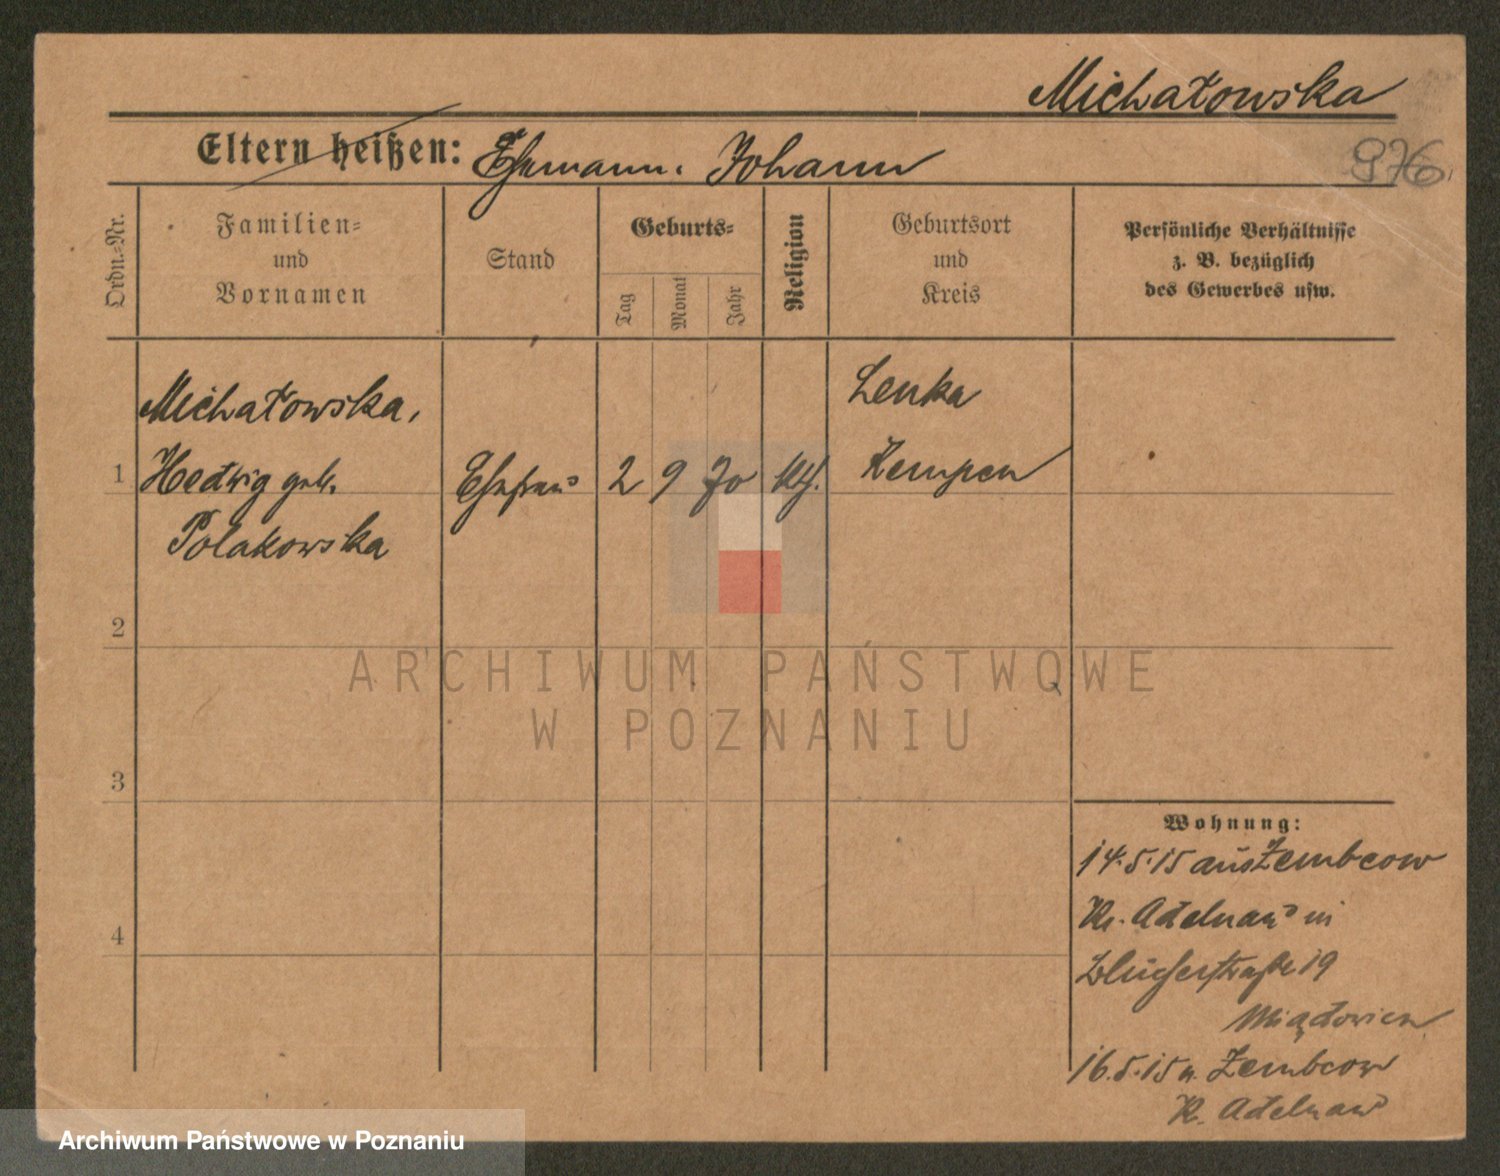 Michałowska
976.
Eltern heißen: Ehemann: Johann
Ordn.=Nr.
Familien=
und
Vornamen
Stand
Geburts=
Tag
Monat
Jahr
Religion
Geburtsort
und
Kreis
Persönliche Verhältnisse
z. B. bezüglich
des Gewerbes usw.
1
Michałowska,
Hedwig geb.
Polakowska
Ehefrau
2
9
70
kth.
Lenka
Kempen
2
3
4
Wohnung:
14.5.15 aus Zembcow
Kr. Adelnau in
Blücherstraße 19
16.5.15 n. Zembcow
K. Adelnau
ARCHIWUM PAŃSTWOWE
W POZNANIU
Archiwum Państwowe w Poznaniu